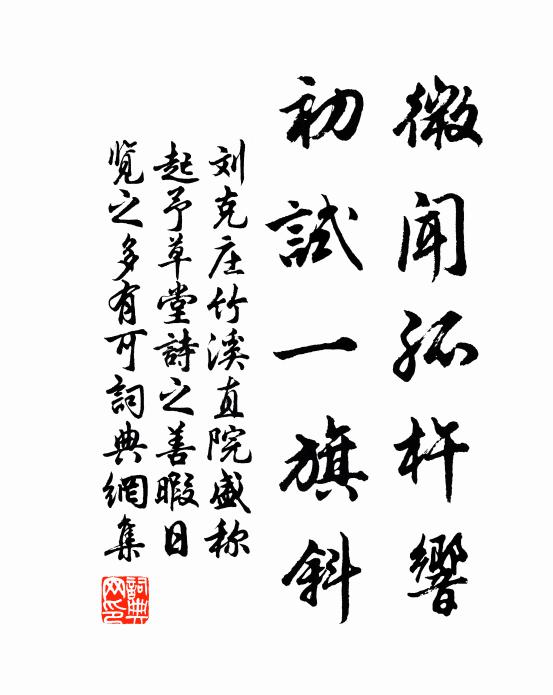 微聞孤杵響
初試一旗斜
刘克庄竹溪直院盛称
起予草堂詩之善暇日
览之多有可詞典網集
詞典網印